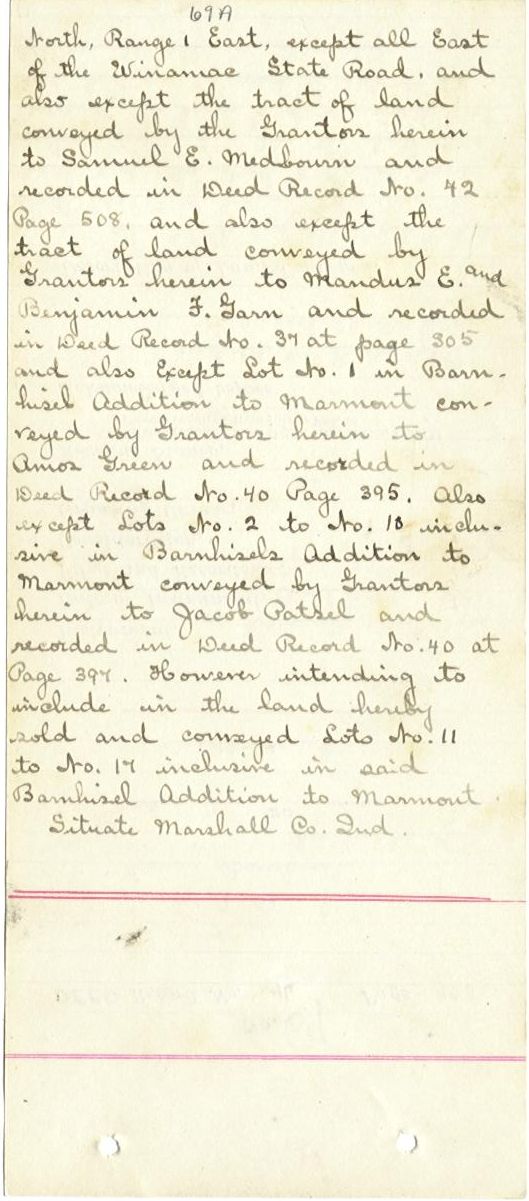 69A
North, Range 1 East, except all East
of the Winamac State Road, and
also except the tract of land
conveyed by the Grantors herein
to Samuel E. Medbourn and
recorded in Deed Record No. 42
Page 508, and also except the
tract of land conveyed by
Grantors herein to Mandus E. and
Benjamin F. Garn and recorded
in Deed Record No. 37 at page 305
and also Except Lot No. 1 in Barn-
hisel Addition to Marmont con-
veyed by Grantors herein to
Amos Green and recorded in
Deed Record No. 40 Page 395. Also
except Lots No. 2 to No. 10 inclu-
sive in Barnhisels Addition to
Marmont conveyed by Grantors
herein to Jacob Patsel and
recorded in Deed Record No. 40 at
Page 397. However intending to
include in the land hereby
sold and conveyed Lots No. 11
to No. 17 inclusive in said
Barnhisel Addition to Marmont.
Situate Marshall Co. Ind.